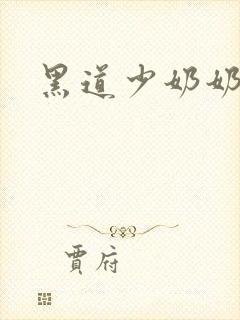 黑道少奶奶
賈府